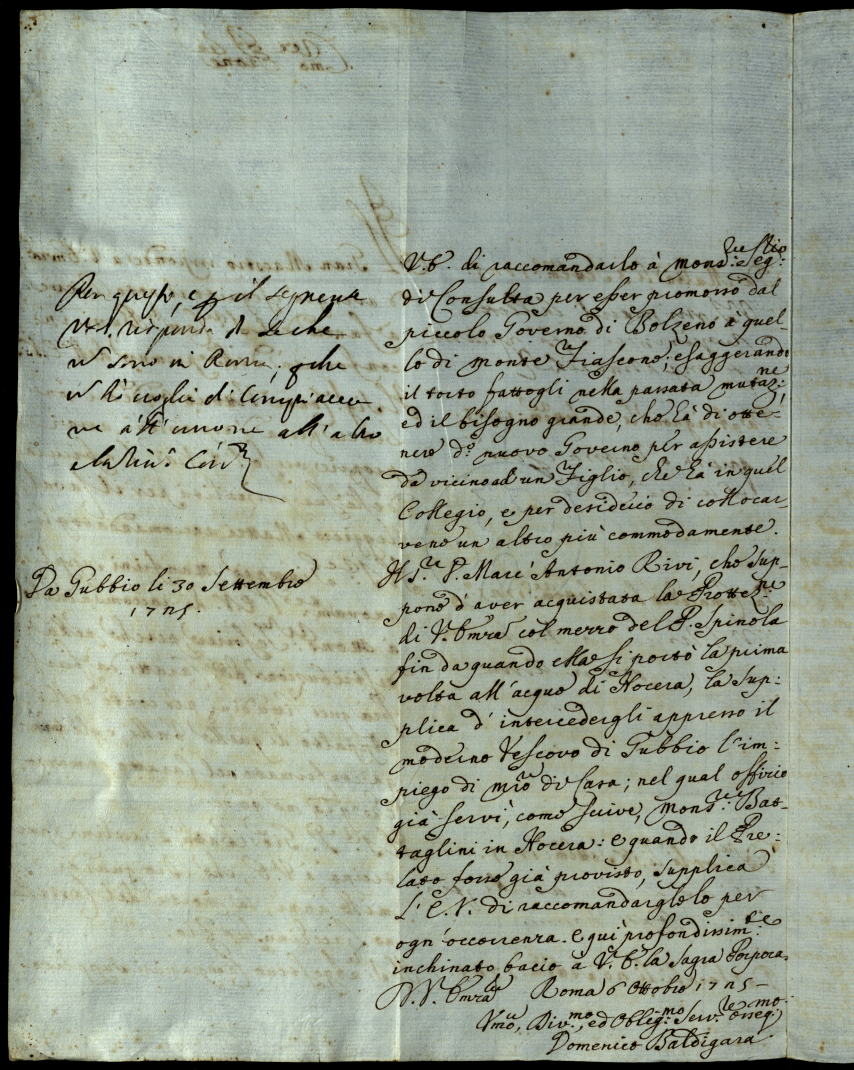 V.E. di raccomandarlo à Mons:re Seg:rio
di Consulta per esser promosso dal
piccolo Governo di Bolzeno à quel-
lo di Monte Fiascone; esaggerando
il torto fattogli nella passata mutaz:ne,
ed il bisogno grande, che hà di otte-
nere d.o nuovo Governo per assistere
da vicino ad un Figlio, che hà in quel
Collegio, e per desiderio di collocar-
vene un altro più commodamente.
Il S.re P. Marc'Antonio Rivi, che sup-
pone d'aver acquistata la Prottez:ne
di V. Emza col mezzo del P. Spinola
fin da quando ella si portò la prima
volta all'acque di Nocera, la sup-
plica d'intercedergli appresso il
moderno Vescovo di Gubbio l'im-
piego di mro di Casa; nel qual offizio
già servì, come scrive, Mons.re Bat-
taglini in Nocera: e quando il Pre-
lato fosse già provisto, supplica
l'E.V. di raccomandarglelo per
ogn'occorrenza. e qui profondissim:te
inchinato bacio a V.E. la Sagra Porpora.
D.V. Emza Roma 6 Ottobre 1725-
Vmo, Div:mo, ed Oblig:mo Serv:re osseq:mo
Domenico Baldigara
Per questo, e p il
risponda di che
sono in Roma; che
di
all'altro
Da Gubbio li 30 Settembre
1725.